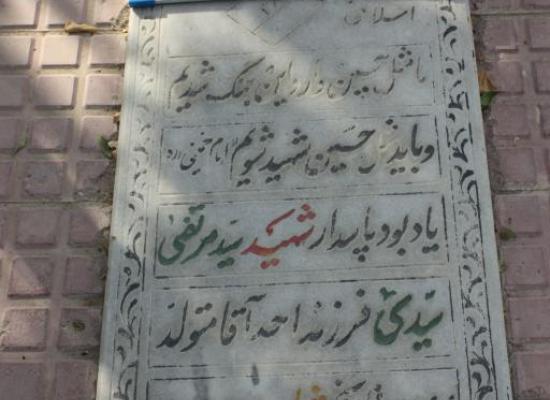 اسلامی
ما مثل حسین وارد این جنگ شدیم
و باید مثل حسین شهید شویم امام خمینی (ره)
یادبود پاسدار شهید سید مرتضی
سیدی فرزند احد آقا متولد